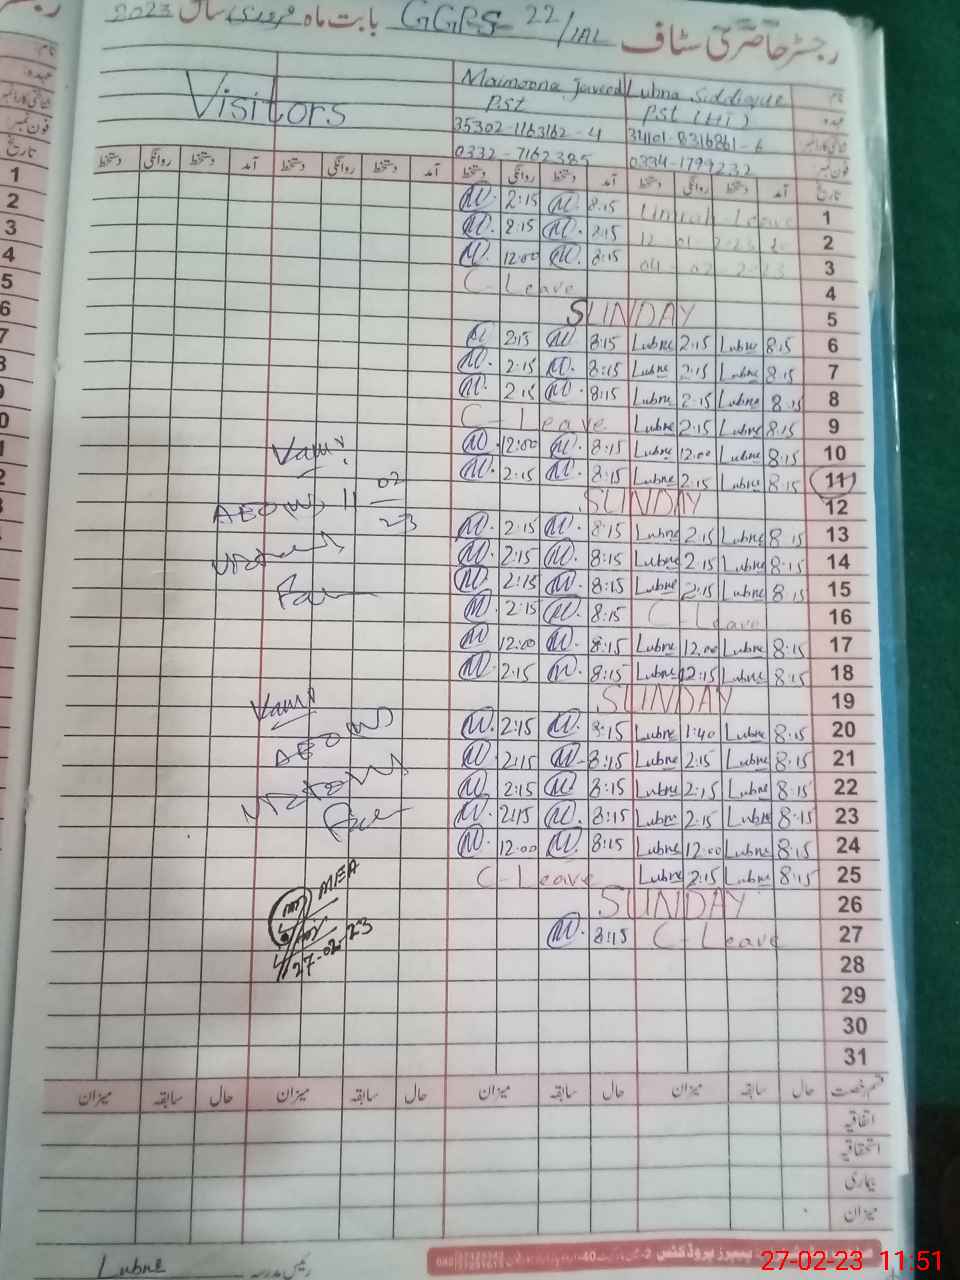 رجسٹر حاضری سٹاف GGPS-22/1AL بابت ماہ فروری سال 2023
Visitors
نام Lubna Siddique Maimoona Javeed
عہدہ PST (HT) PST
34101-8316861-6 35302-1163162-4
فون نمبر 0334-1799232 0332-7162385
تاریخ آمد دستخط روانگی دستخط آمد دستخط روانگی دستخط آمد دستخط روانگی دستخط آمد دستخط روانگی دستخط
M. 2:15 M. 8:15 Umrah Leave 1
M. 2:15 M. 8:15 2
M. 12:00 M. 8:15 3
C-Leave 4
SUNDAY 5
M. 2:15 M. 8:15 Lubna 2:15 Lubna 8:15 6
M. 2:15 M. 8:15 Lubna 2:15 Lubna 8:15 7
M. 2:15 M. 8:15 Lubna 2:15 Lubna 8:15 8
C-Leave Lubna 2:15 Lubna 8:15 9
M. 12:00 M. 8:15 Lubna 12:00 Lubna 8:15 10
M. 2:15 M. 8:15 Lubna 2:15 Lubna 8:15 11
SUNDAY 12
M. 2:15 M. 8:15 Lubna 2:15 Lubna 8:15 13
M. 2:15 M. 8:15 Lubna 2:15 Lubna 8:15 14
M. 2:15 M. 8:15 Lubna 2:15 Lubna 8:15 15
M. 2:15 M. 8:15 C-Leave 16
M. 12:00 M. 8:15 Lubna 12:00 Lubna 8:15 17
M. 2:15 M. 8:15 Lubna 2:15 Lubna 8:15 18
SUNDAY 19
M. 2:15 M. 8:15 Lubna 1:40 Lubna 8:15 20
M. 2:15 M. 8:15 Lubna 2:15 Lubna 8:15 21
M. 2:15 M. 8:15 Lubna 2:15 Lubna 8:15 22
M. 2:15 M. 8:15 Lubna 2:15 Lubna 8:15 23
M. 12:00 M. 8:15 Lubna 12:00 Lubna 8:15 24
C-Leave Lubna 2:15 Lubna 8:15 25
SUNDAY 26
M. 8:15 C-Leave 27
28
29
30
31
AEO 11-02-23
AEO
MEA
27-02-23
قسم رخصت حال سابقہ میزان حال سابقہ میزان حال سابقہ میزان حال سابقہ میزان
اتفاقیہ
استحقاقیہ
بیماری
میزان
رئیس مدرسہ Lubna
27-02-23 11:51